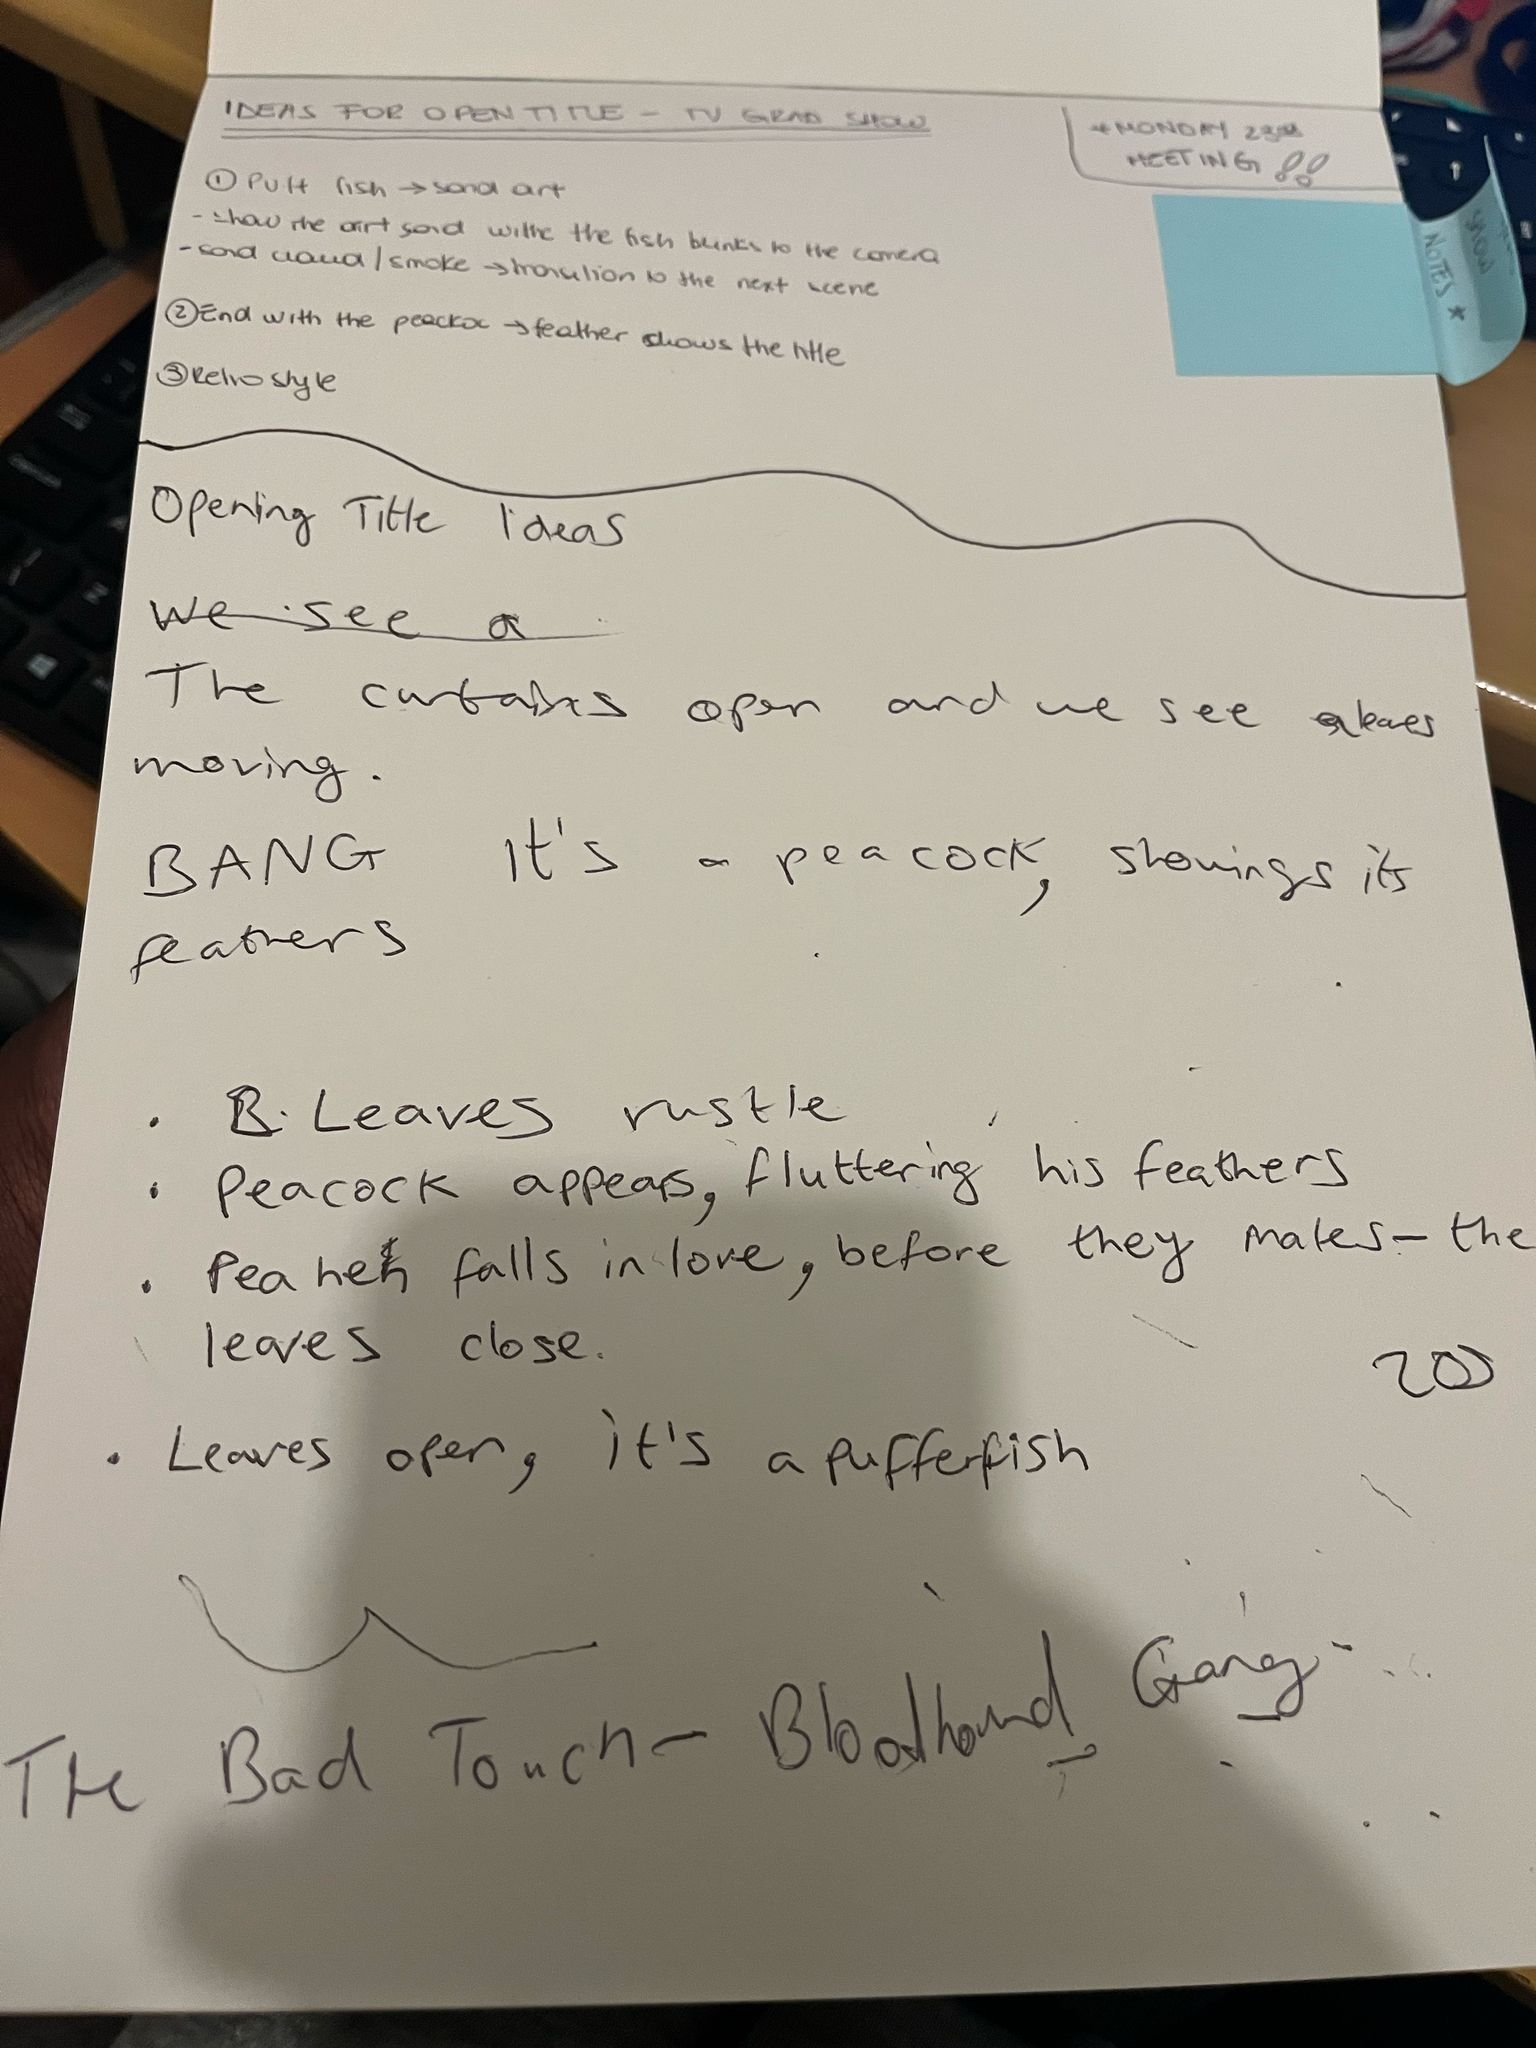 IDEAS FOR OPEN TITLE - TV GRAD SHOW
* MONDAY 23rd
MEETING !!
① Puff fish → sand art
- show the art sand withe the fish blinks to the camera
- sand cloud / smoke → transition to the next scene
② End with the peackoc → feather shows the title
③ Retro style
SHOW
NOTES ★
Opening Title Ideas
We see a
The curtains open and we see leaves
moving.
BANG It's a peacock, showings its
feathers
• B. Leaves rustle
• Peacock appears, fluttering his feathers
• Peahen falls in love, before they mates - the
leaves close.
• Leaves open, it's a pufferfish
The Bad Touch - Bloodhound Gang